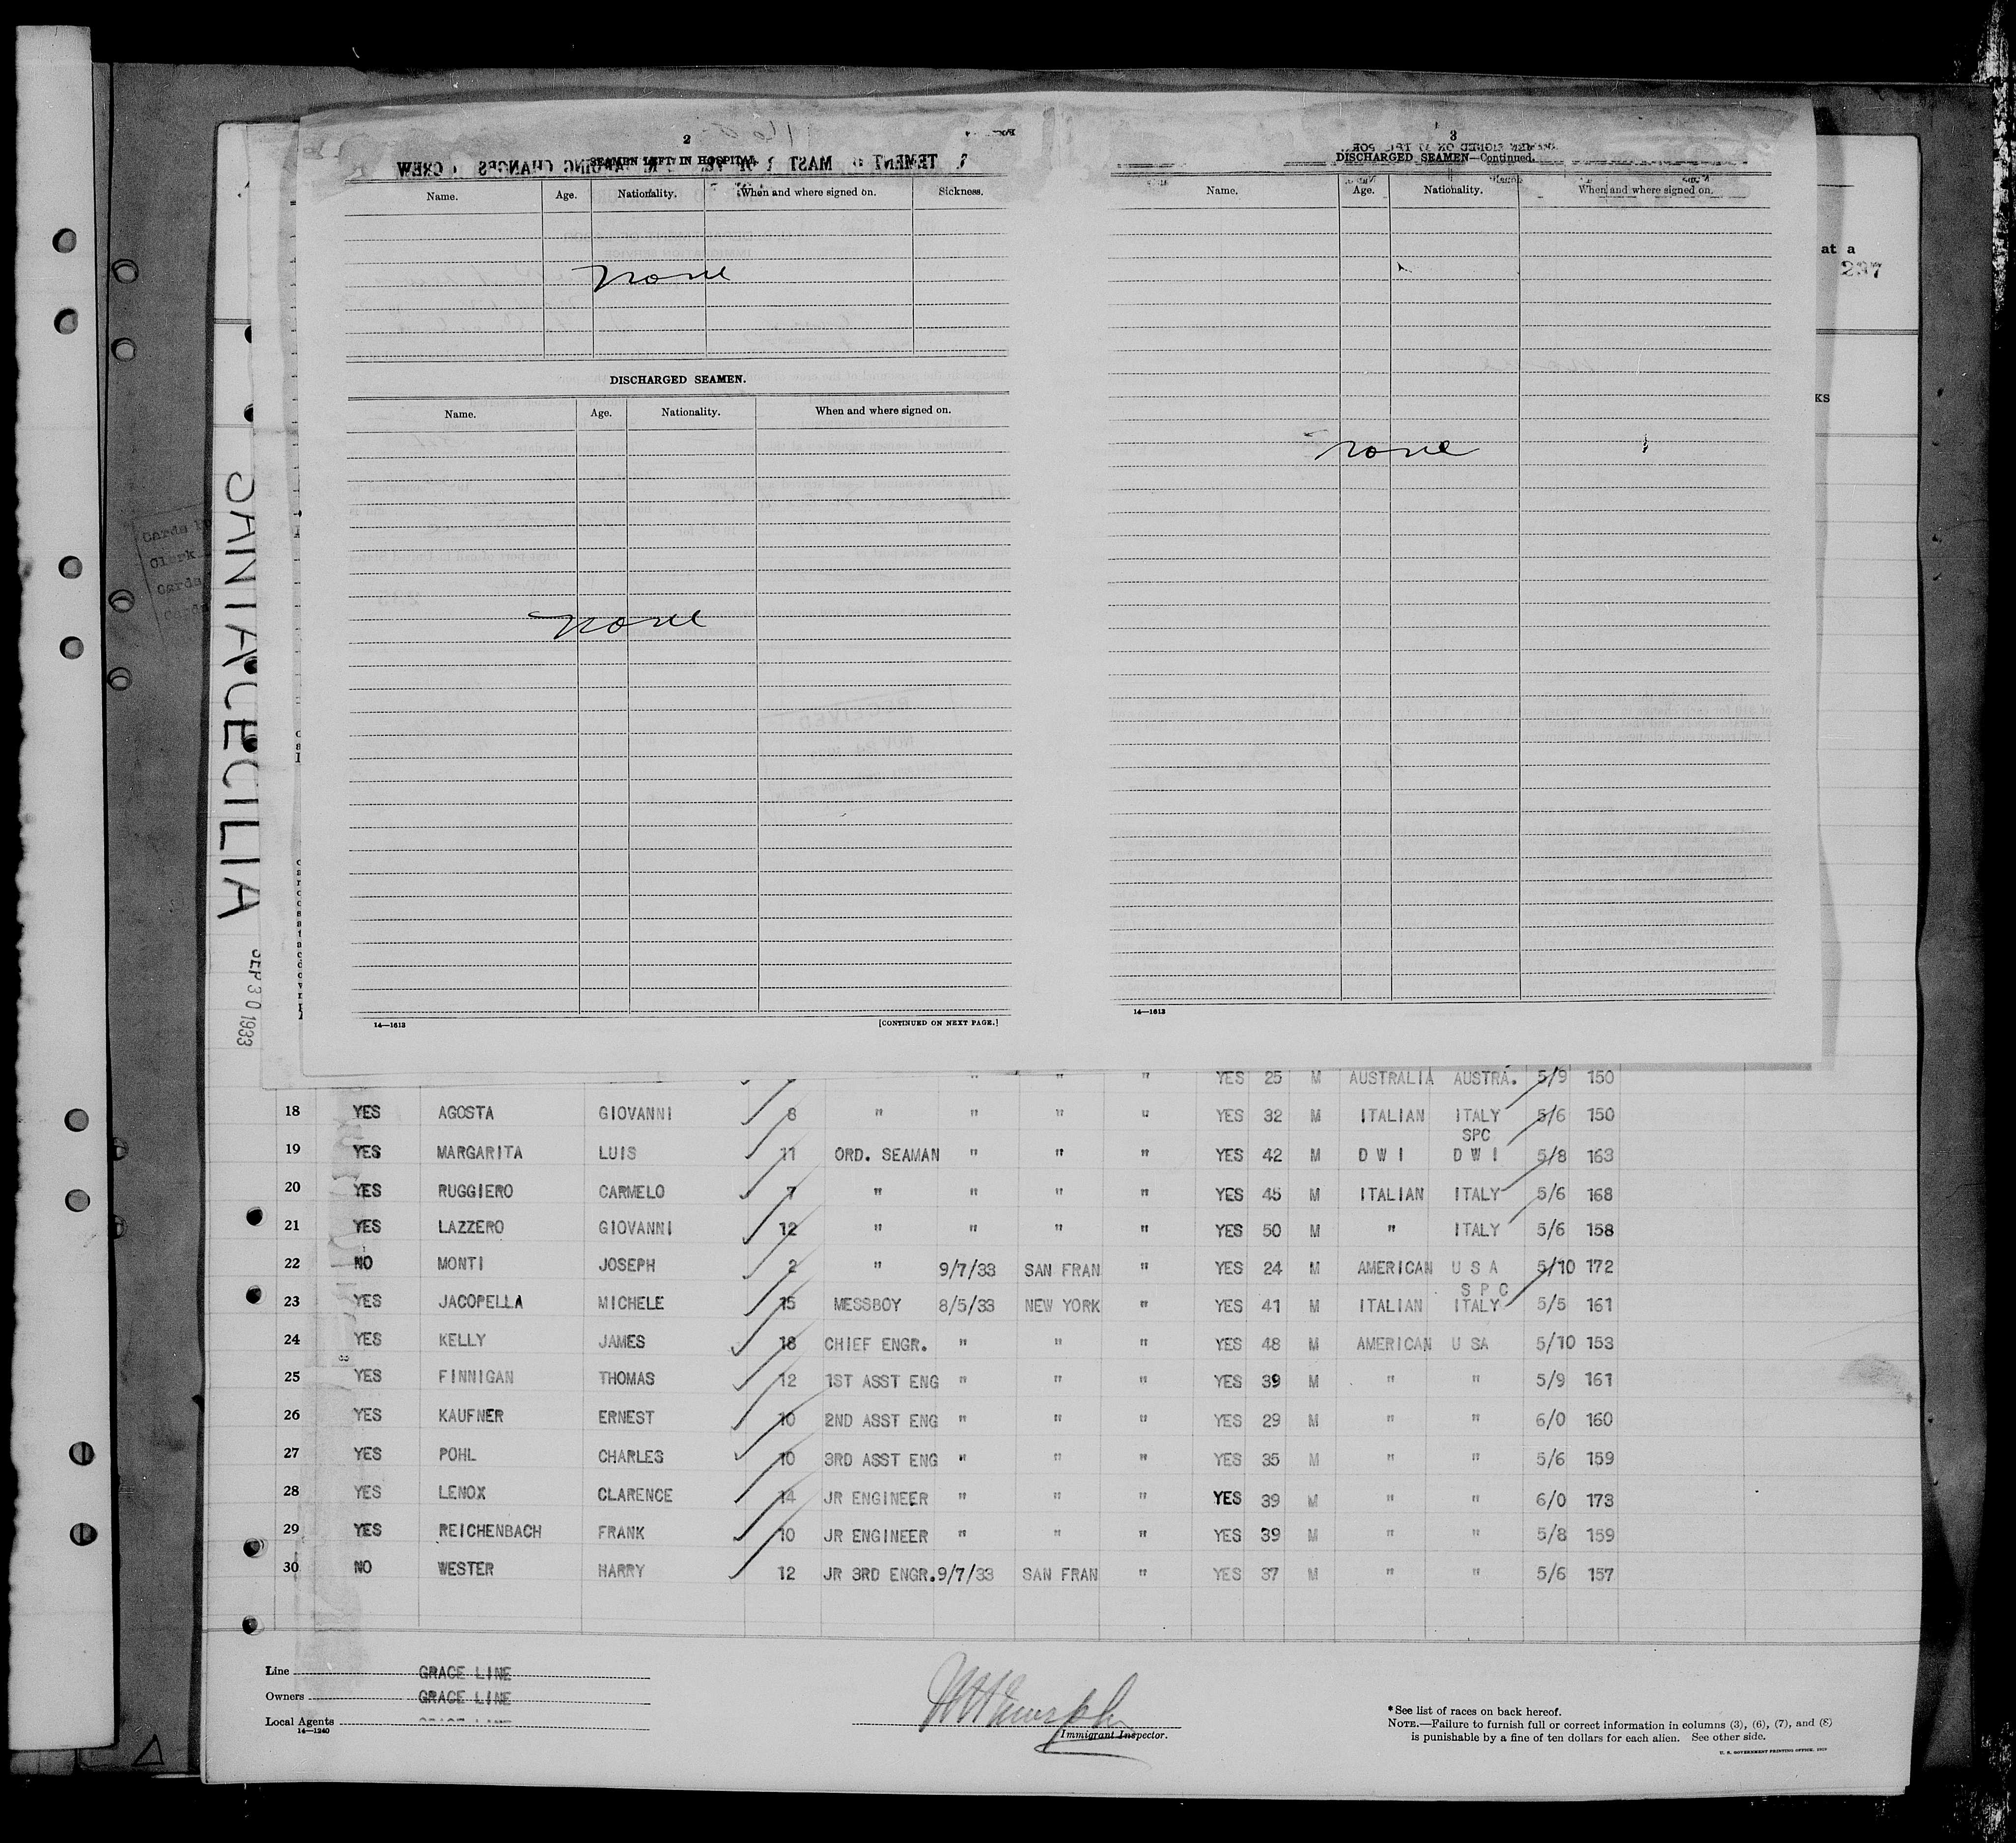 2
SEAMEN LEFT IN HOSPITAL.
Name. Age. Nationality. When and where signed on. Sickness.
None
DISCHARGED SEAMEN.
Name. Age. Nationality. When and where signed on.
None
14—1613 [CONTINUED ON NEXT PAGE.]
3
DISCHARGED SEAMEN—Continued.
Name. Age. Nationality. When and where signed on.
None
14—1613
at a
237
KS
Cards
Clerk
Cards
Cards
SANTA CECILIA
SEP 30 1933
" " " YES 25 M AUSTRALIA AUSTRA. 5/9 150
18 YES AGOSTA GIOVANNI 8 " " " " YES 32 M ITALIAN ITALY 5/6 150
SPC
19 YES MARGARITA LUIS 11 ORD. SEAMAN " " " YES 42 M D W I D W I 5/8 163
20 YES RUGGIERO CARMELO 7 " " " " YES 45 M ITALIAN ITALY 5/6 168
21 YES LAZZERO GIOVANNI 12 " " " " YES 50 M " ITALY 5/6 158
22 NO MONTI JOSEPH 2 " 9/7/33 SAN FRAN " YES 24 M AMERICAN U S A 5/10 172
S P C
23 YES JACOPELLA MICHELE 15 MESSBOY 8/5/33 NEW YORK " YES 41 M ITALIAN ITALY 5/5 161
24 YES KELLY JAMES 18 CHIEF ENGR. " " " YES 48 M AMERICAN U SA 5/10 153
25 YES FINNIGAN THOMAS 12 1ST ASST ENG " " " YES 39 M " " 5/9 161
26 YES KAUFNER ERNEST 10 2ND ASST ENG " " " YES 29 M " " 6/0 160
27 YES POHL CHARLES 10 3RD ASST ENG " " " YES 35 M " " 5/6 159
28 YES LENOX CLARENCE 14 JR ENGINEER " " " YES 39 M " " 6/0 173
29 YES REICHENBACH FRANK 10 JR ENGINEER " " " YES 39 M " " 5/8 159
30 NO WESTER HARRY 12 JR 3RD ENGR. 9/7/33 SAN FRAN " YES 37 M " " 5/6 157
Line GRACE LINE
Owners GRACE LINE
Local Agents GRACE LINE
14—1240
Immigrant Inspector.
*See list of races on back hereof.
NOTE.—Failure to furnish full or correct information in columns (3), (6), (7), and (8)
is punishable by a fine of ten dollars for each alien. See other side.
U. S. GOVERNMENT PRINTING OFFICE